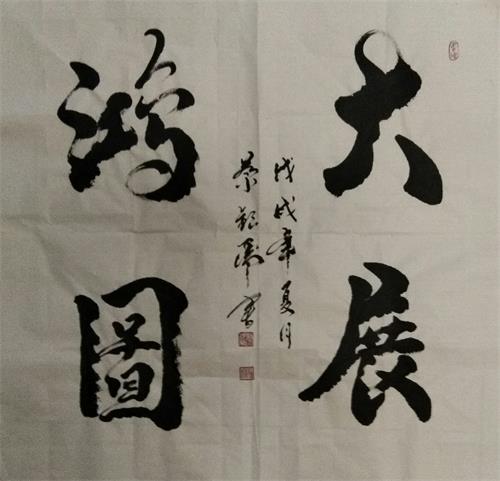 大展
鸿圖
戊戌年夏月